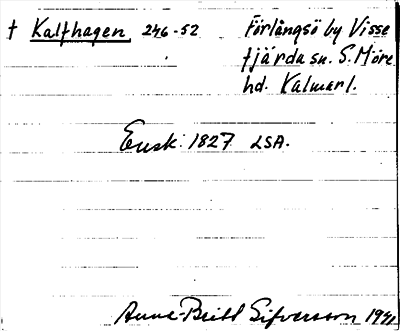 † Kalfhagen 246-52 Förlångsö by Visse
fjärda sn. S. Möre
hd. Kalmar l.
Ensk. 1827 LSA.
Anna-Britt Sifversson 1971